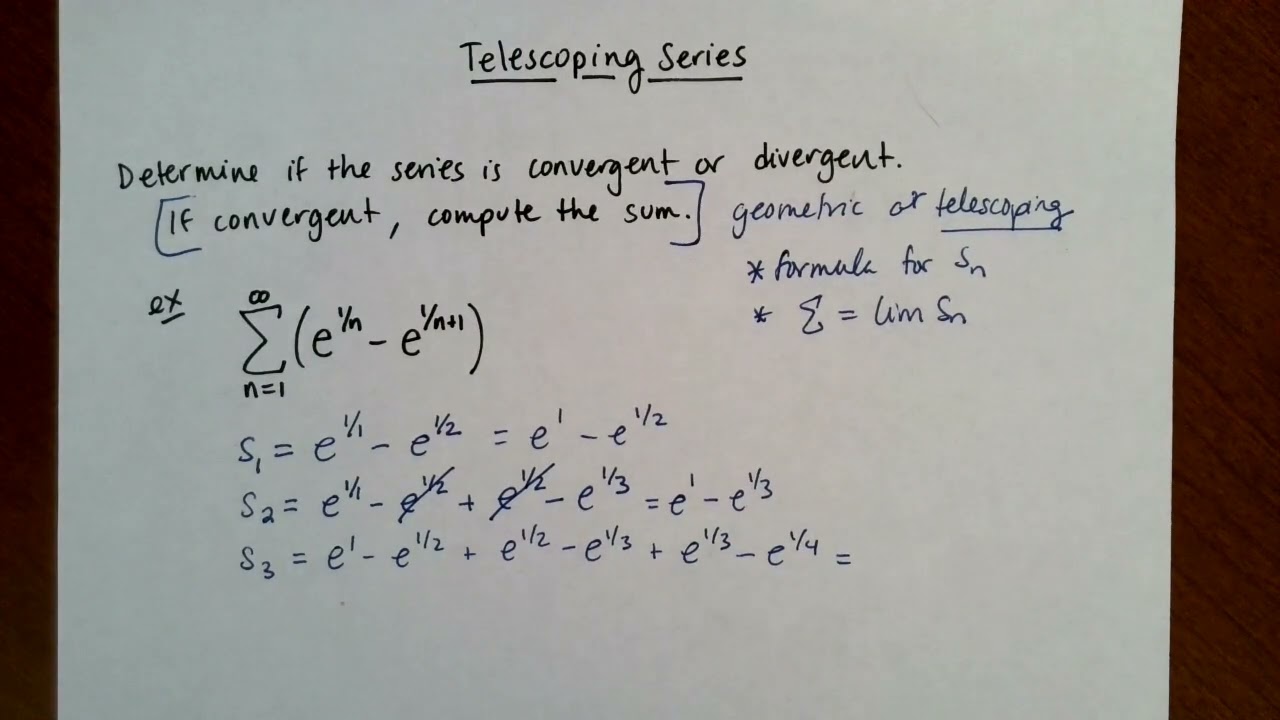 Telescoping Series
Determine if the series is convergent or divergent.
[If convergent, compute the sum.] geometric or telescoping
* formula for Sn
* Σ = lim Sn
ex ∞
∑ (e^1/n - e^1/n+1)
n=1
S₁ = e^1/1 - e^1/2 = e^1 - e^1/2
S₂ = e^1/1 - e^1/2 + e^1/2 - e^1/3 = e^1 - e^1/3
S₃ = e^1 - e^1/2 + e^1/2 - e^1/3 + e^1/3 - e^1/4 =